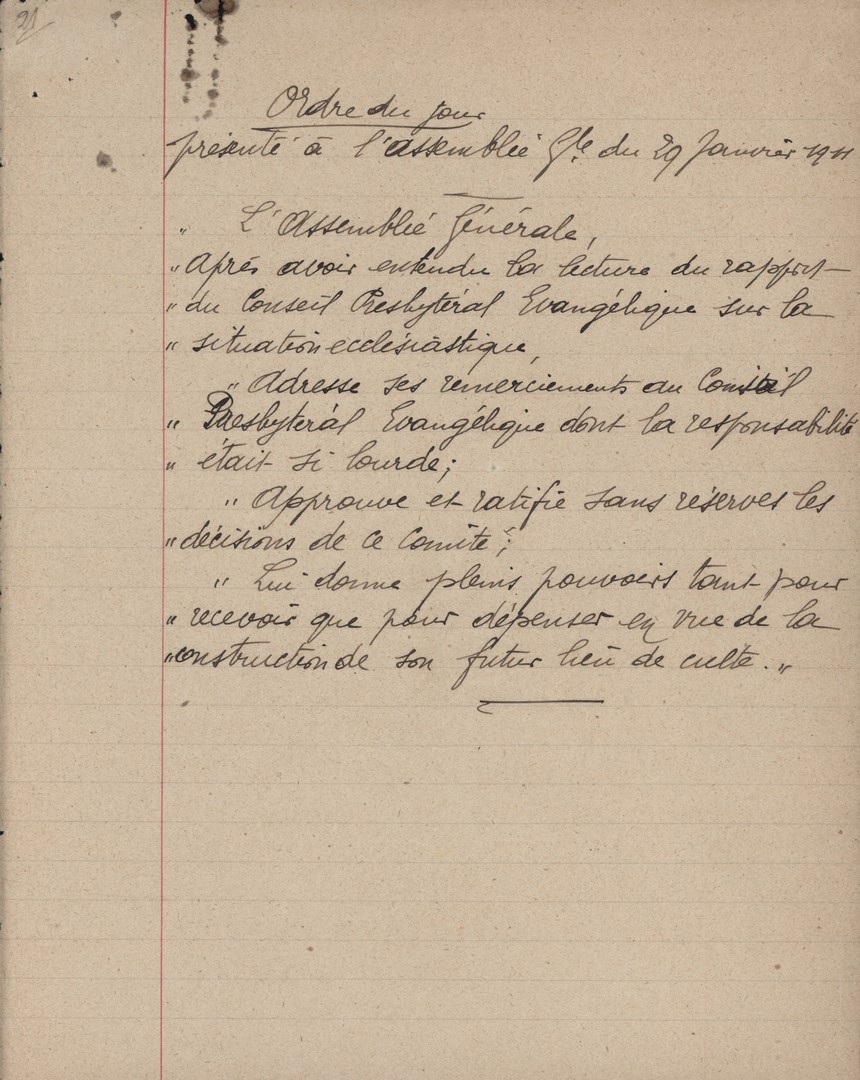 21
Ordre du jour
présenté à l'assemblée Gle du 29 Janvier 1911
" L'Assemblée Générale,
" Après avoir entendu la lecture du rapport
" du Conseil Presbytéral Evangélique sur la
" situation ecclésiastique,
" Adresse ses remerciements au Conseil
" Presbytéral Evangélique dont la responsabilité
" était si lourde;
" Approuve et ratifie sans réserves les
" décisions de ce Comité;
" Lui donne pleins pouvoirs tant pour
" recevoir que pour dépenser en vue de la
" construction de son futur lieu de culte. "